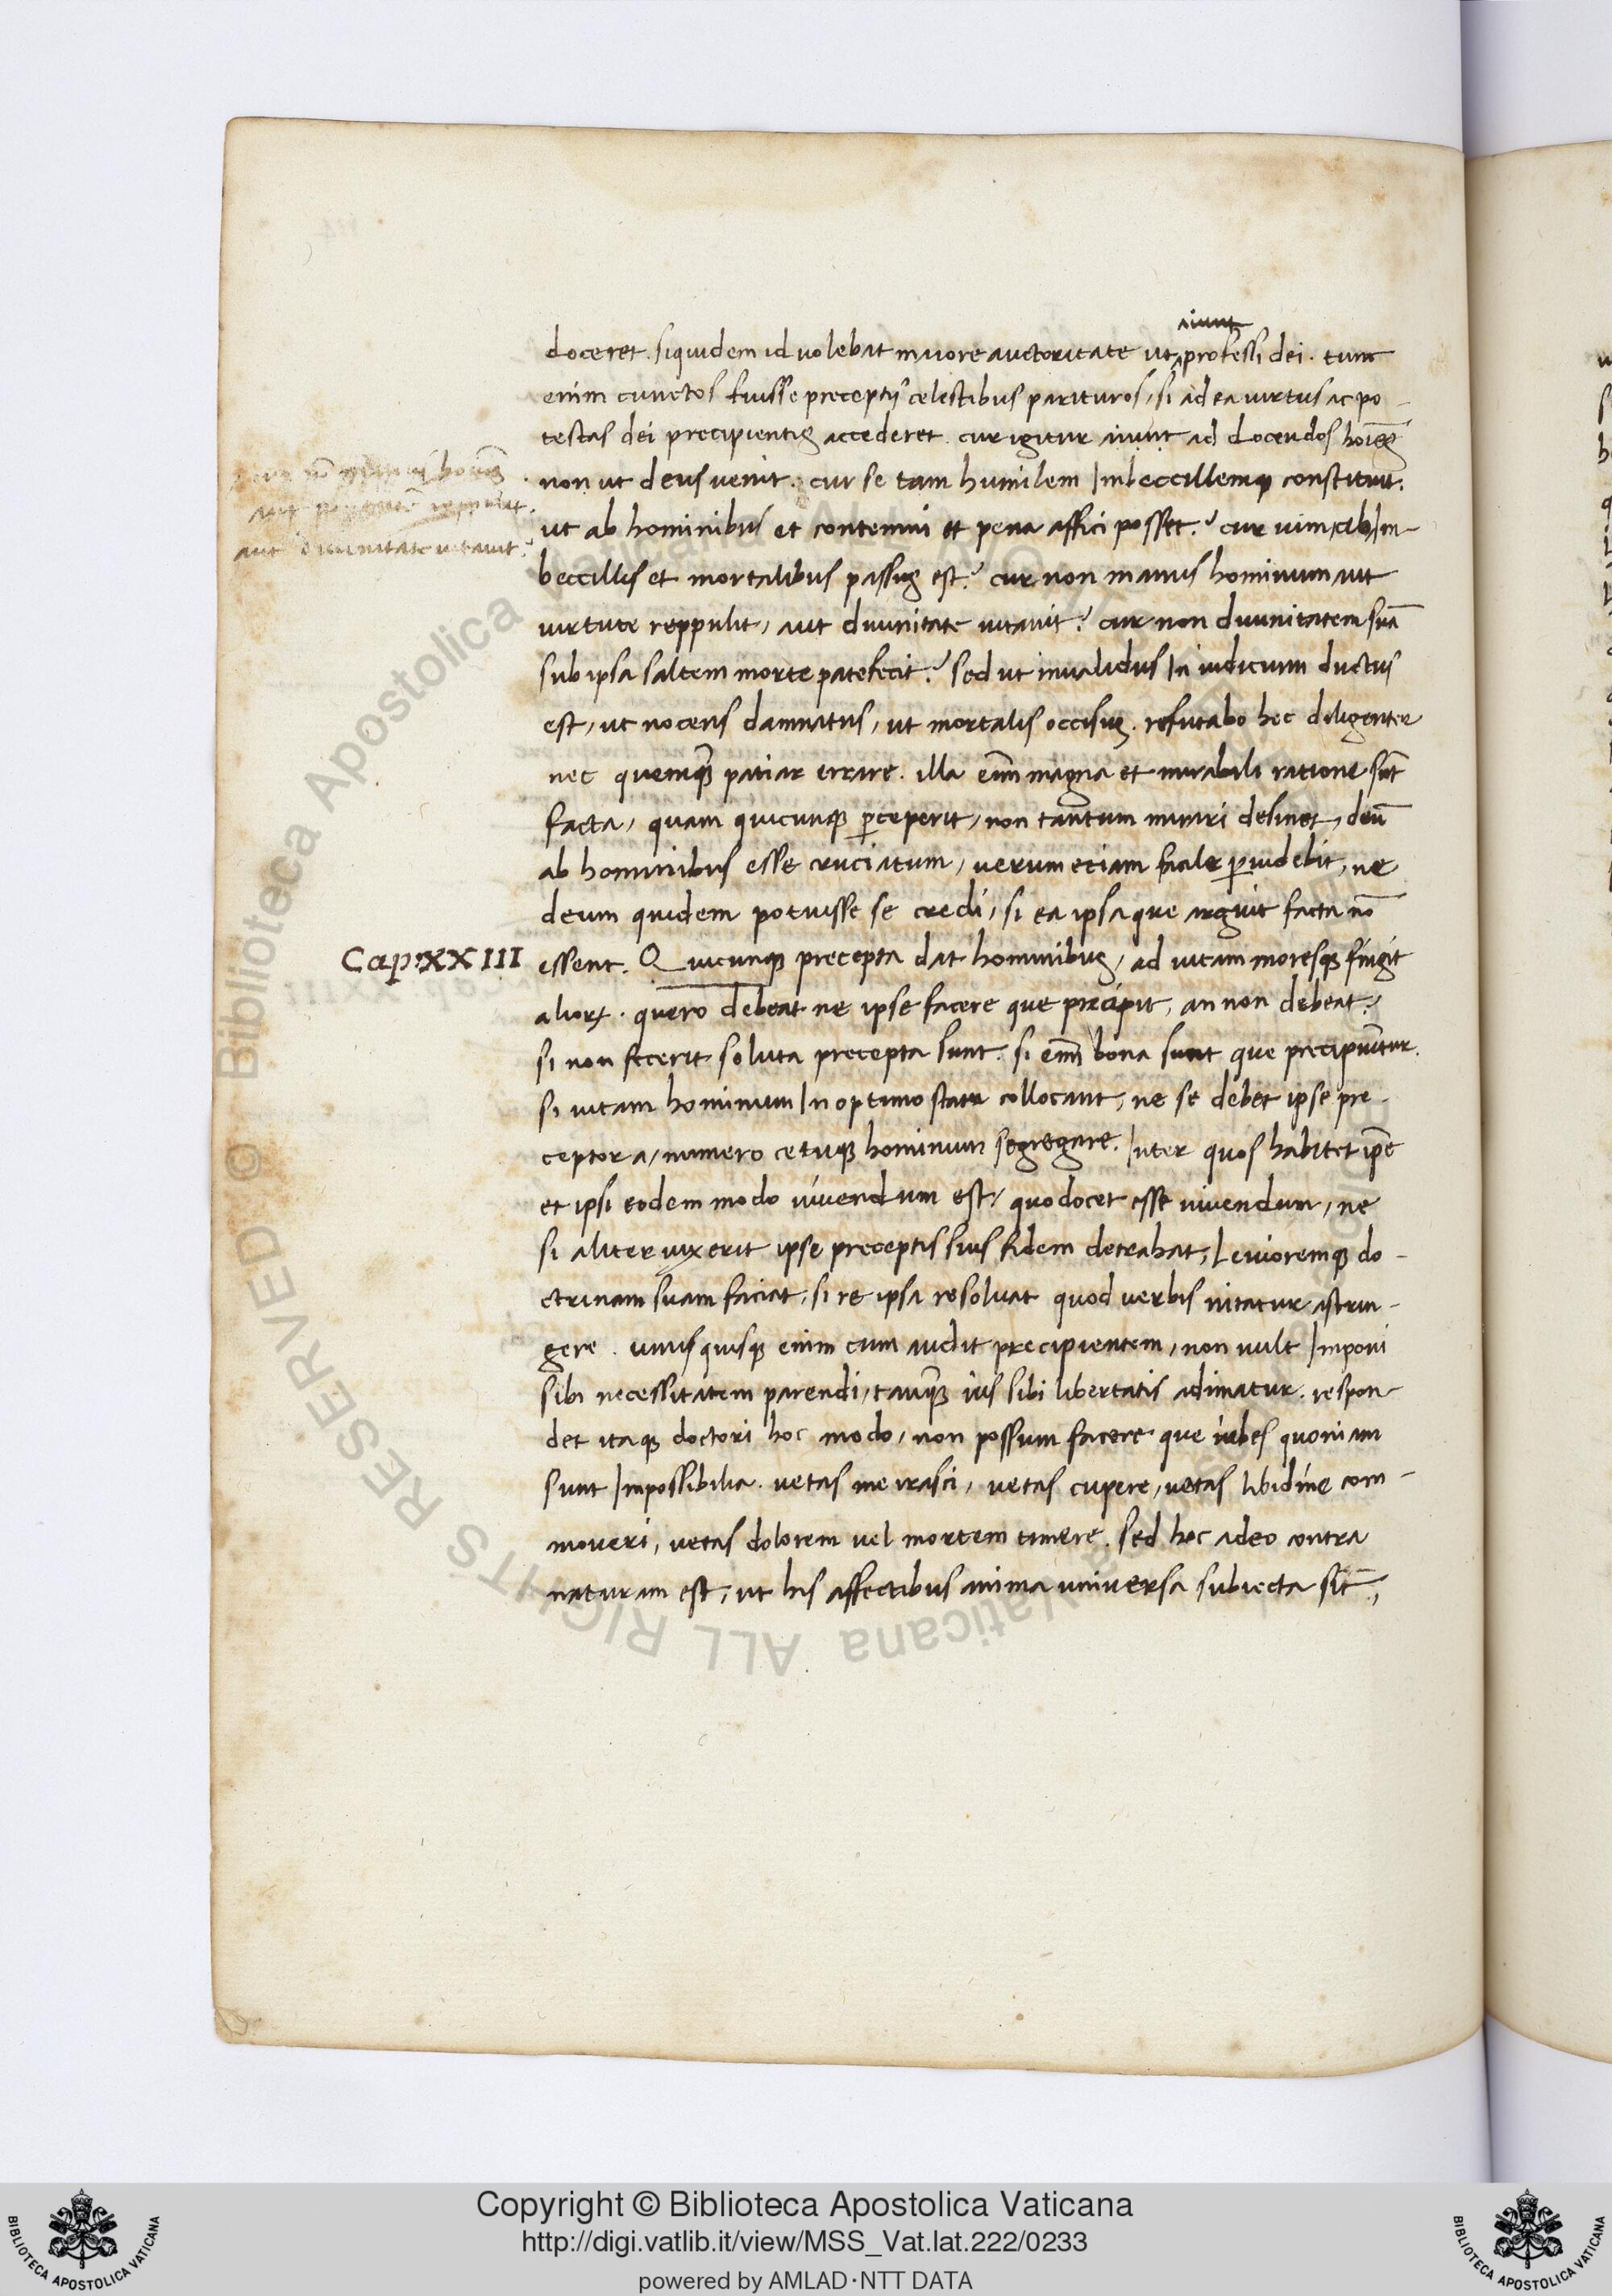 aiunt
doceret. siquidem id volebat maiore auctoritate ut professi dei. tunc
enim cunctos fuisse preceptis celestibus parituros, si ad ea virtus ac po-
testas dei precipientis accederet. cur igitur aiunt ad docendos hoīes
non ut deus venit. cur se tam humilem Imbeccillemq constituit.
ut ab hominibus et contemni et pena affici posset? cur vim ab Im-
beccillis et mortalibus passus est? cur non manus hominum aut
aut divinitate vitavit?
virtute reppulit, aut divinitate vitavit? cur non divinitatem suā
sub ipsa saltem morte patefecit? Sed ut invalidus In iudicium ductus
est, ut nocens damnatus, ut mortalis occisus. refutabo hec diligenter
nec quemq̄ patiar errare. illa enī magna et mirabili ratione sūt
facta, quam quicunq perceperit, non tantum mirari desinet, deū
ab hominibus esse cruciatum, verum etiam facile pervidebit, ne
deum quidem potuisse se credi, si ea ipsa que arguit facta nō
Cap: XXIII
essent. Quicunq precepta dat hominibus, ad vitam moresq fingit
alioꝝ. quero debeat ne ipse facere que precipit, an non debeat?
si non fecerit soluta precepta sunt. si enī bona sunt que precipiuntur.
si vitam hominum In optimo statu collocant, ne se debet ipse pre-
ceptor a, numero cetuq hominum segregare. Inter quos habitet ip̄e
et ipsi eodem modo vivendum est, quo docet esse vivendum, ne
si aliter vixerit ipse preceptis suis fidem detrahat, Levioremq do-
ctrinam suam faciat, si re ipsa resolvat quod verbis nitatur astrin-
gere. unusquisq enim cum audit precipientem, non vult Imponi
sibi necessitatem parendi, tanq̄ ius sibi libertatis adimatur. respon-
det itaq doctori hoc modo, non possum facere que iubes quoniam
sunt Impossibilia. vetas me irasci, vetas cupere, vetas libidine com-
moveri, vetas dolorem vel mortem timere. Sed hoc adeo contra
naturam est, ut his affectibus anima universa subiecta sit,
Biblioteca Apostolica Vaticana ALL RIGHTS RESERVED ©
Copyright © Biblioteca Apostolica Vaticana
http://digi.vatlib.it/view/MSS_Vat.lat.222/0233
powered by AMLAD·NTT DATA
BIBLIOTECA APOSTOLICA VATICANA
BIBLIOTECA APOSTOLICA VATICANA